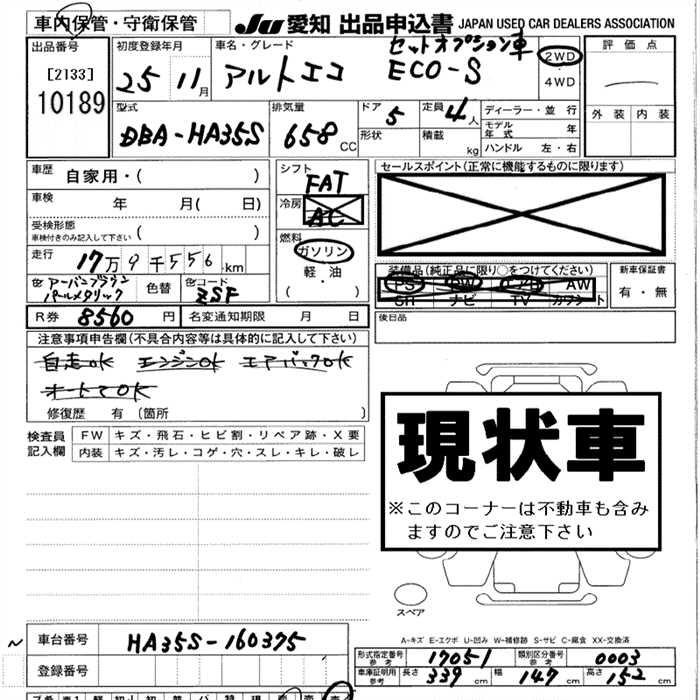 車内保管・守衛保管
JU 愛知 出品申込書 JAPAN USED CAR DEALERS ASSOCIATION
出品番号
[2133]
10189
初度登録年月
25 11月
車名・グレード
アルトエコ
セットオプション車
ECO-S
2WD
4WD
評価点
外装 内装
型式
DBA-HA35S
排気量
658 CC
ドア 5
形状
定員 4人
積載 kg
ディーラー・並行
モデル年式 年
ハンドル 左・右
車歴 自家用・( )
車検 年 月( 日)
受検形態
車検付きのみ記入して下さい ( )
走行 17万9千556km
色 アーバンブラウンパールメタリック
色替
色コード ZSF
R券 8560円
名変通知期限 月 日
シフト
FAT
冷房
AC
燃料
ガソリン
軽・油
( ・ )
セールスポイント(正常に機能するものに限ります)
装備品(純正品に限り○をつけてください)
PS PW エアB AW
SR ナビ TV カワシート
新車保証書
有・無
後日品
注意事項申告欄(不具合内容等は具体的に記入して下さい)
自走OK エンジンOK エアバックOK
オートマOK
修復歴 有(箇所 )
検査員記入欄
FW キズ・飛石・ヒビ割・リペア跡・X要
内装 キズ・汚レ・コゲ・穴・スレ・キレ・破レ
現状車
※このコーナーは不動車も含み
ますのでご注意下さい
スペア
A-キズ E-エクボ U-凹み W-補修跡 S-サビ C-腐食 XX-交換済
車台番号 HA35S-160375
登録番号
形式指定番号 参考 17051
類別区分番号 参考 0003
車庫証明用 参考 長さ 339cm 幅 147cm 高さ 152cm